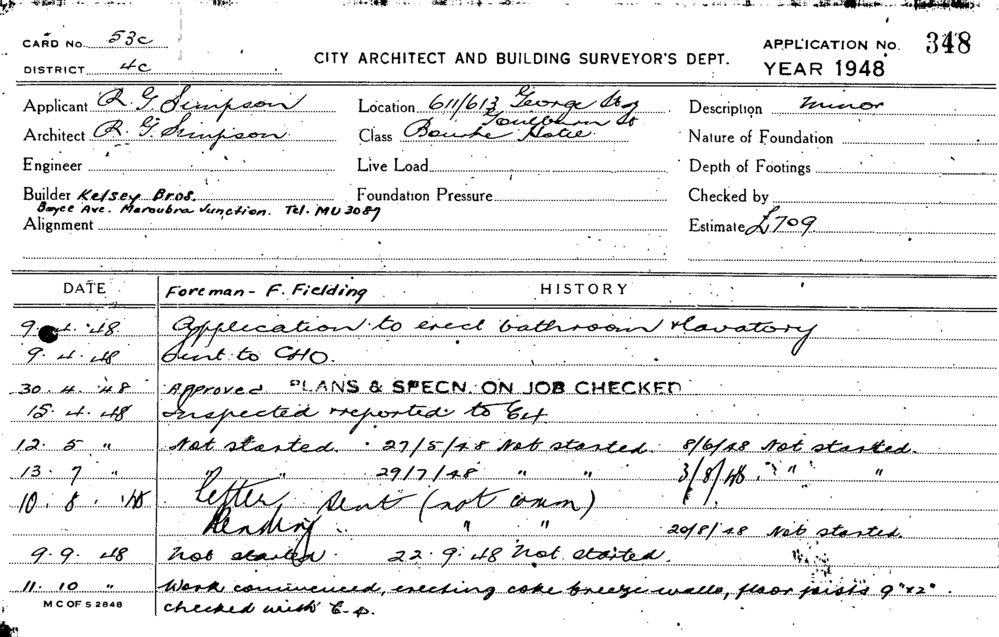 CARD NO. 53c
DISTRICT 4c
CITY ARCHITECT AND BUILDING SURVEYOR'S DEPT.
APPLICATION NO. 348
YEAR 1948
Applicant R G Simpson
Location 611/613 George St &
Goulburn St
Description Minor
Architect R. G Simpson
Class Bourke Hotel
Nature of Foundation
Engineer
Live Load
Depth of Footings
Builder Kelsey Bros.
Boyce Ave. Maroubra Junction. Tel. MU 3087
Foundation Pressure
Checked by
Alignment
Estimate £709
DATE Foreman - F. Fielding HISTORY
9. 4. 48 Application to erect bathroom & lavatory
9. 4. 48 Sent to CHO.
30. 4. 48 Approved PLANS & SPECN. ON JOB CHECKED
15. 4. 48 Inspected & reported to
12. 5 " Not started. 27/5/48 Not started. 8/6/48 Not started.
13. 7 " " 29/7/48 " " 3/8/48. " "
10. 8. 48 Letter sent (not comm)
Pending " " 20/8/48 Not started.
9. 9. 48 Not started. 22. 9. 48 Not started.
11. 10 " Work commenced, erecting coke breeze walls, floor joists 9"x2".
M C OF S 2848 checked with